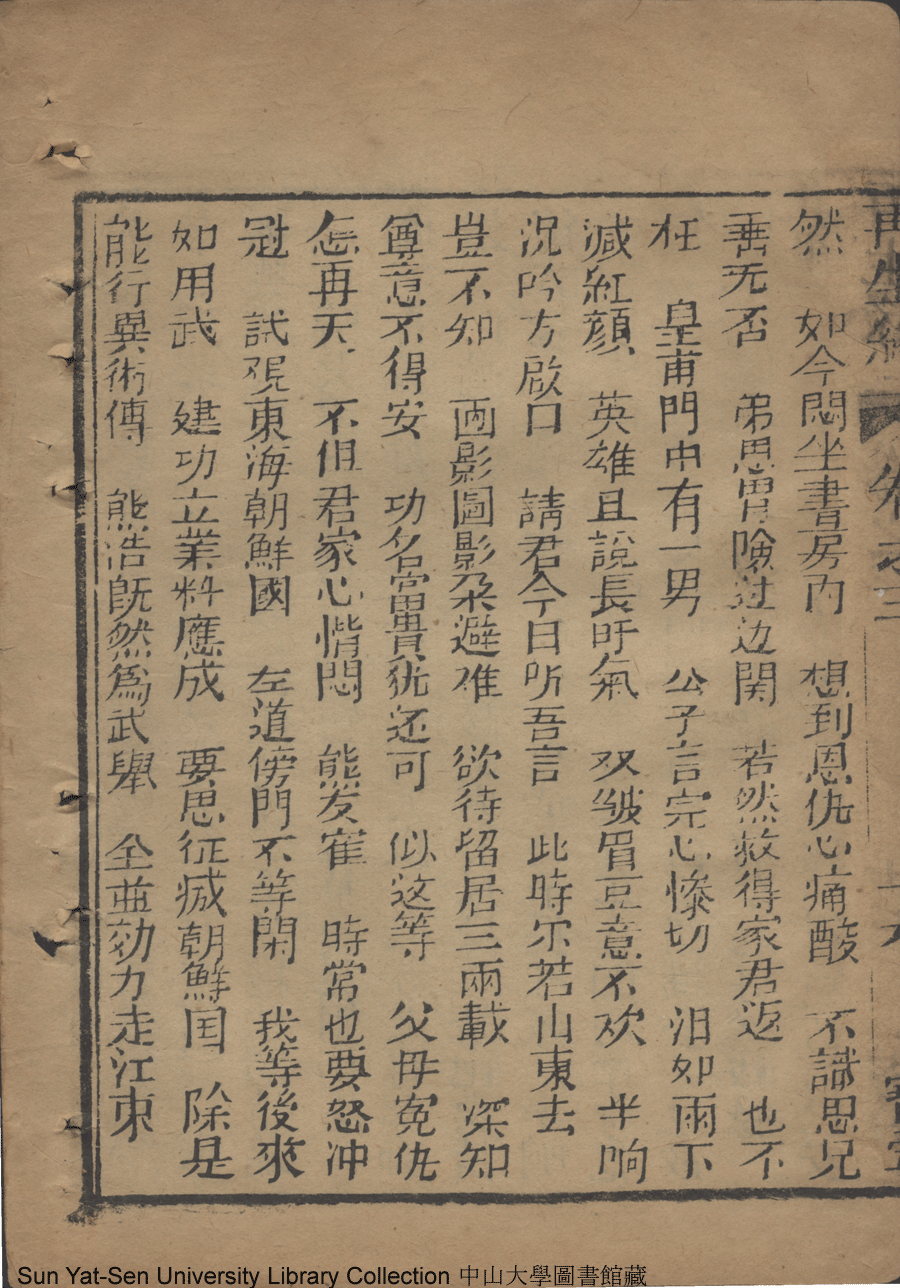 再生緣 卷之三
然 如今悶坐書房內 想到恩仇心痛酸 不識思兄
善无否 弟思冒險过边関 若然救得家君返 也不
枉 皇甫門中有一男 公子言完心慘切 泪如雨下
减紅顔 英雄且說長吁氣 双皱眉豆意不欢 半晌
況吟方啟口 請君今日听吾言 此時尔若山東去
豈不知 画影圖影朶避难 欲待留居三兩載 深知
尊意不得安 功名富貴犹还可 似这等 父母寃仇
怎再天 不但君家心惰悶 熊友寉 時常也要怒冲
冠 試覌東海朝鮮國 左道傍門不等閑 我等後來
如用武 建功立業料應成 要思征烕朝鮮囯 除是
能行異術傳 熊浩旣然爲武舉 全並効力走江東
Sun Yat-Sen University Library Collection 中山大學圖書館藏